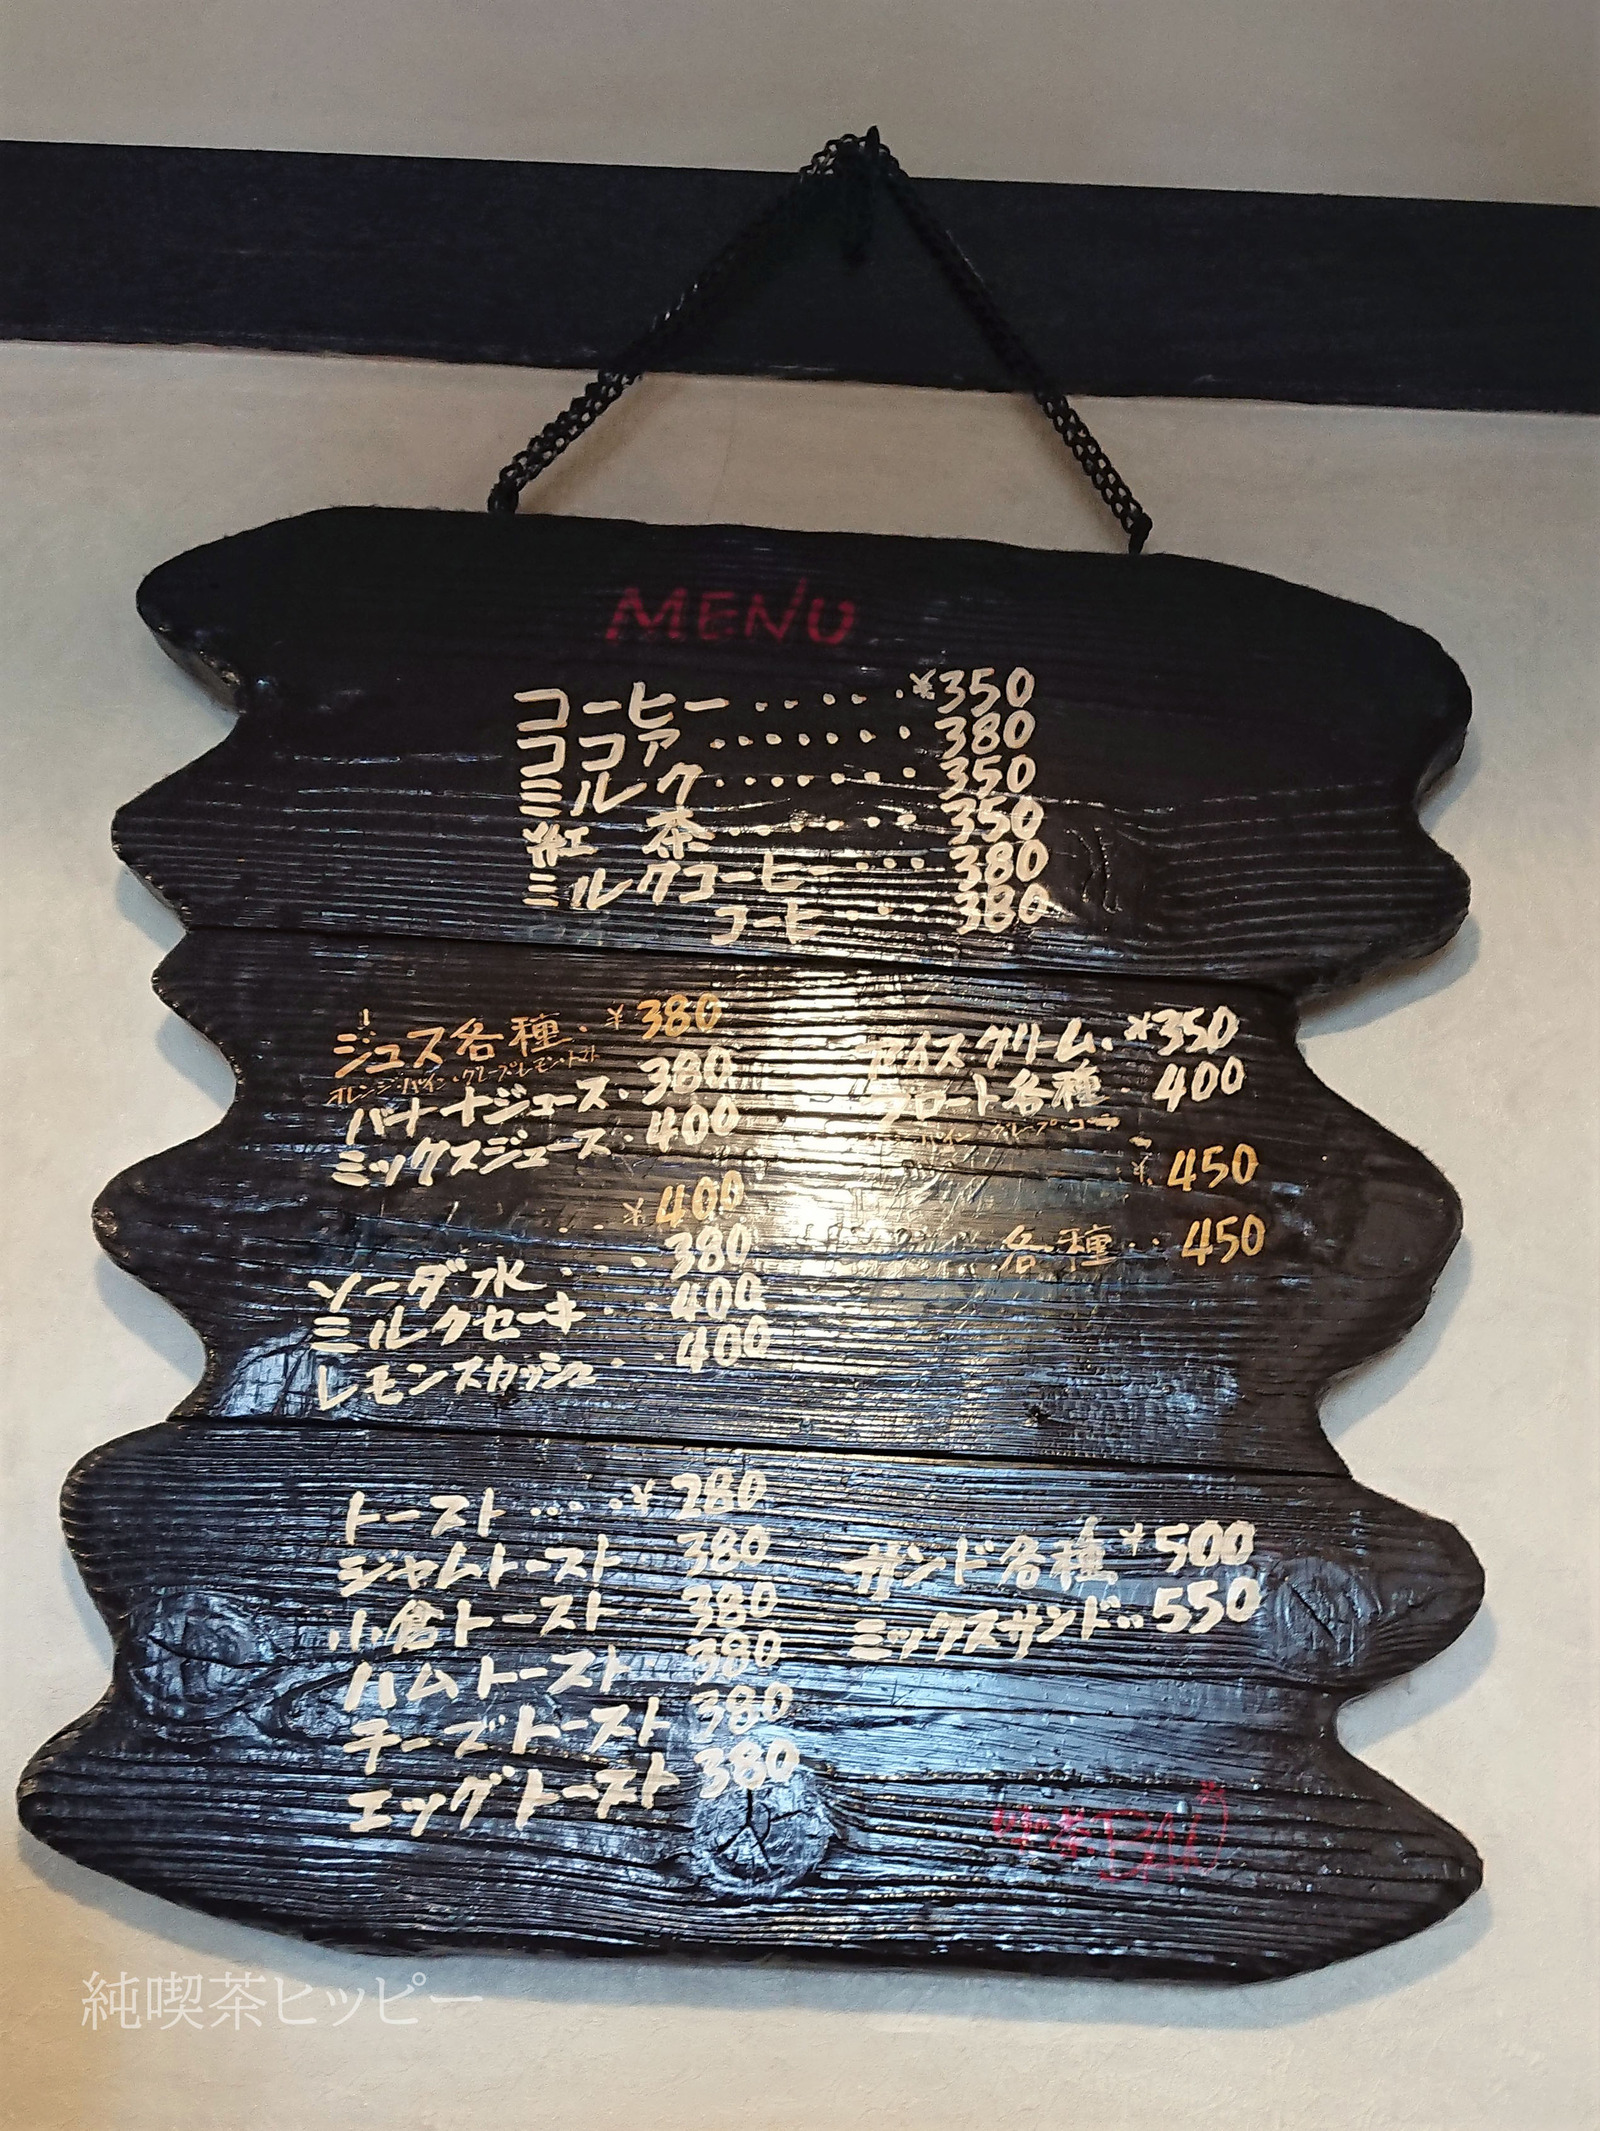 MENU
コーヒー......¥350
ココア.......380
ミルク.......350
紅 茶.......350
ミルクコーヒー....380
コーヒ....380
ジュース各種.¥380
オレンジ・パイン・グレープ・レモン・トマト
バナナジュース.380
ミックスジュース.400
...¥400
ソーダ水....380
ミルクセーキ...400
レモンスカッシュ...400
アイスクリーム.¥350
フロート各種.400
パイン グレープ・コー
¥450
各種..450
トースト....¥280
ジャムトースト.380
小倉トースト.380
ハムトースト.380
チーズトースト 380
エッグトースト 380
サンド各種¥500
ミックスサンド..550
純喫茶ヒッピー